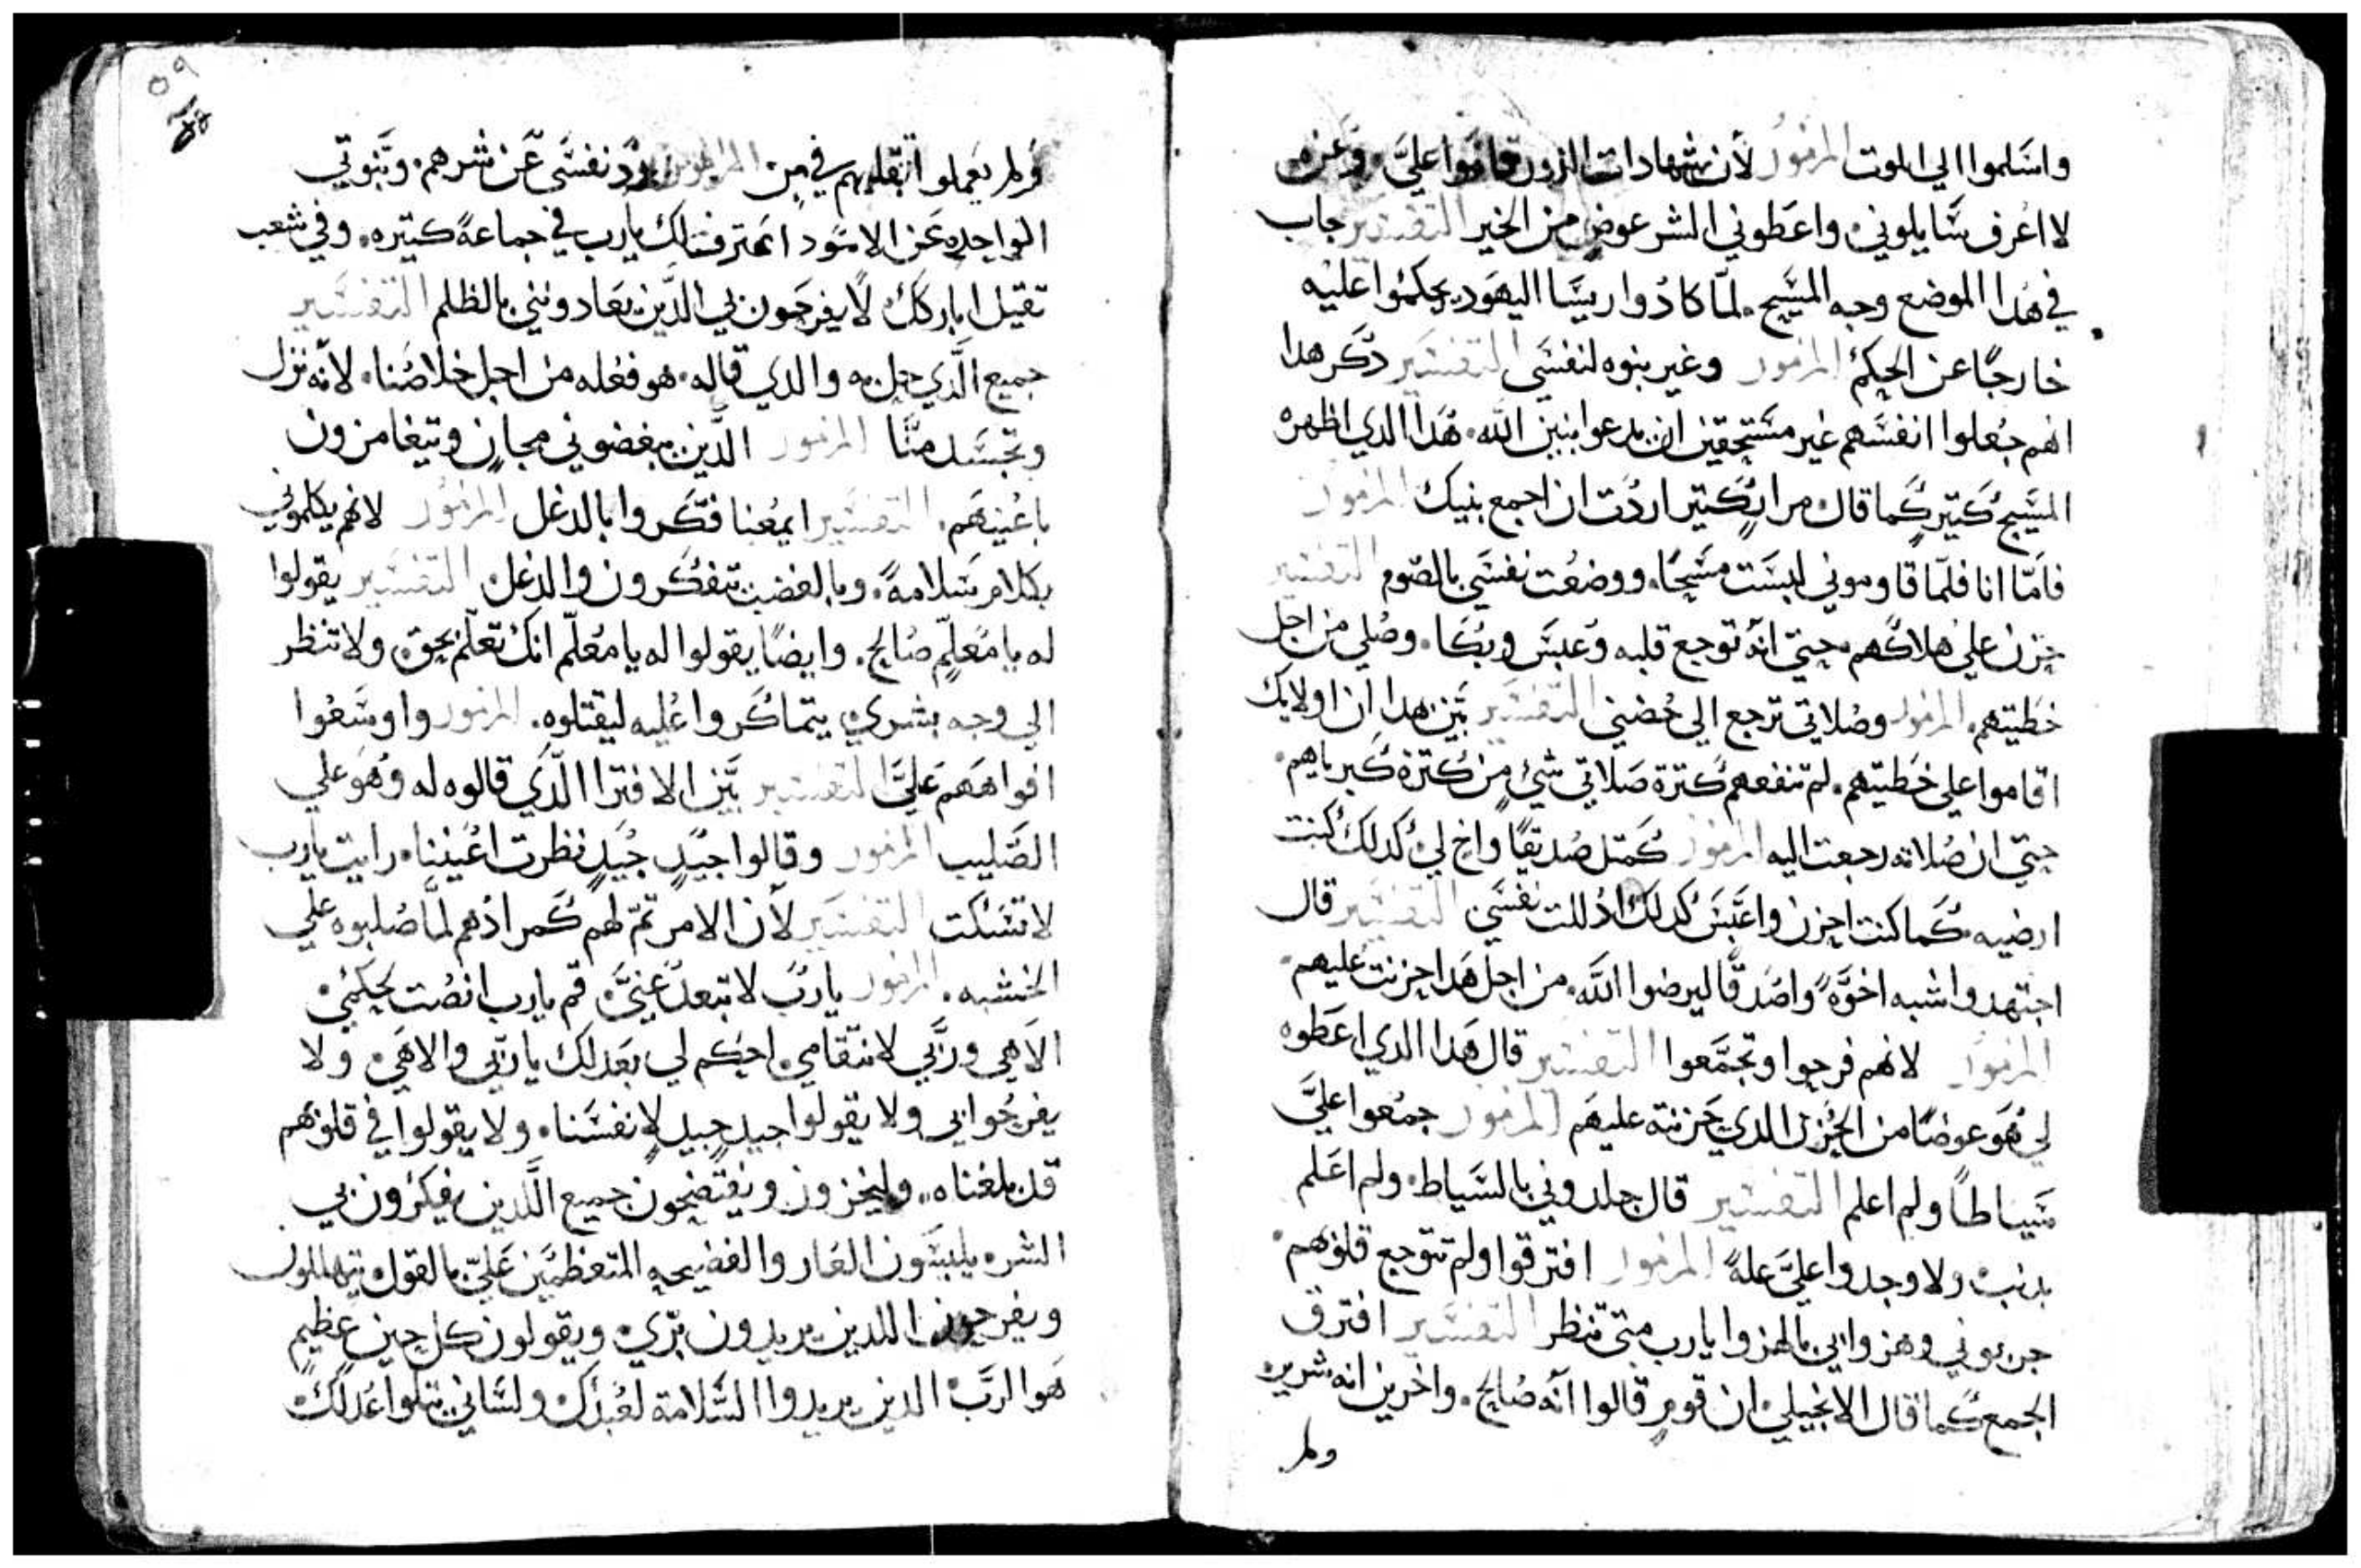 واسلموا الي الموت المزمور لأن شهادات الزور قاموا علي وعن
لا اعرف سايلوني واعطوني الشر عوض من الخير التفسير جاب
في هدا الموضع وجه المسيح لمّا كادوا ريسا اليهود يحكموا عليه
خارجًا عن الحكم المزمور وغير بنوه لنفسي التفسير دكر هدا
انهم جعلوا انفسهم غير مستحقين ان يدعوا بنين الله هدا الدي اظهره
المسيح كتير كما قال مرارٍ كتير اردت ان اجمع بنيك المزمور
فامّا انا فلمّا قاوموني لبست مسحًا ووضعت نفسي بالصوم التفسير
حزن علي هلاكهم حتي انه توجع قلبه وعبس وبكا وصلي من اجل
خطيتهم المزمور وصلاتي ترجع الي حضني التفسير بيّن هدا ان اولايك
اقاموا علي خطيتهم لم تنفعهم كترة صلاتي شي من كترة كبرياهم
حتي ان صلاته رجعت اليه المزمور كمتل صديقًا واخ لي كدلك كنت
ارضيه كما كنت احزن واعبس كدلك ادللت نفسي التفسير قال
اجتهدوا شبه اخوّه واصدقًا ليرضوا الله من اجل هدا حزنت عليهم
المزمور لانهم فرحوا وتجمّعوا التفسير قال هدا الدي اعطوه
لي هو عوضًا من الحزن الدي حزنته عليهم المزمور جمعوا عليّ
سياطًا ولم اعلم التفسير قال جلدوني بالسياط ولم اعلم
بدنب ولا وجدوا عليّ علة المزمور افترقوا ولم تتوجع قلوبهم
جربوني وهزوا بي بالهزوا يارب متي تنظر التفسير افترق
الجمع كما قال الانجيلي ان قومٍ قالوا انّه صالح واخرين انه شرير
ولم
٥٩
ولم يعملوا بقلبهم في من المزمور ردّ نفسي عن شرهم وبنوتي
الواحده عن الاسود اعترف لك يارب في جماعة كتيره وفي شعب
تقيل اباركك لا يفرحون بي الدين يعادونني بالظلم التفسير
جميع الّدي حل به والدي قاله هو فعله من اجل خلاصنا لانه نزل
وتجسد منّا المزمور الدين يبغضوني مجانٍ ويتغامزون
باعينهم التفسير ايمعنا فكّروا بالدغل المزمور لانهم يكلموني
بكلام سلامة وبالغضب يتفكرون والدغل التفسير يقولوا
له يا معلّم صالح وايضًا يقولوا له يا معلّم انك تعلّم بحق ولا تنظر
الي وجه بشري يتماكروا عليه ليقتلوه المزمور واوسعوا
افواههم عليّ التفسير بيّن الافترا الّدي قالوه له وهو علي
الصليب المزمور وقالوا جيّدٍ جيّدٍ نظرت اعيننا رايت يارب
لا تسكت التفسير لأن الامر تمّ لهم كمرادهم لمّا صلبوه علي
الخشبه المزمور يارب لا تبعد عنيّ قم يارب انصت لحكمي
الاهي وربّي لانتقامي احكم لي بعدلك يا ربّي والاهي ولا
يفرحوا بي ولا يقولوا جيدٍ جيدٍ لانفسنا ولا يقولوا في قلوبهم
قد بلغناه وليخزون ويفتضحون جميع الّدين يفكرون بي
الشر يلبسون العار والفضيحه المتعظمين عليّ بالقول يتهللون
ويفرحون الدين يريدون برّي ويقولون كل حين عظيم
هوا الربّ الدين يريدوا السّلامة لعبدك ولساني يتلوا عدلك